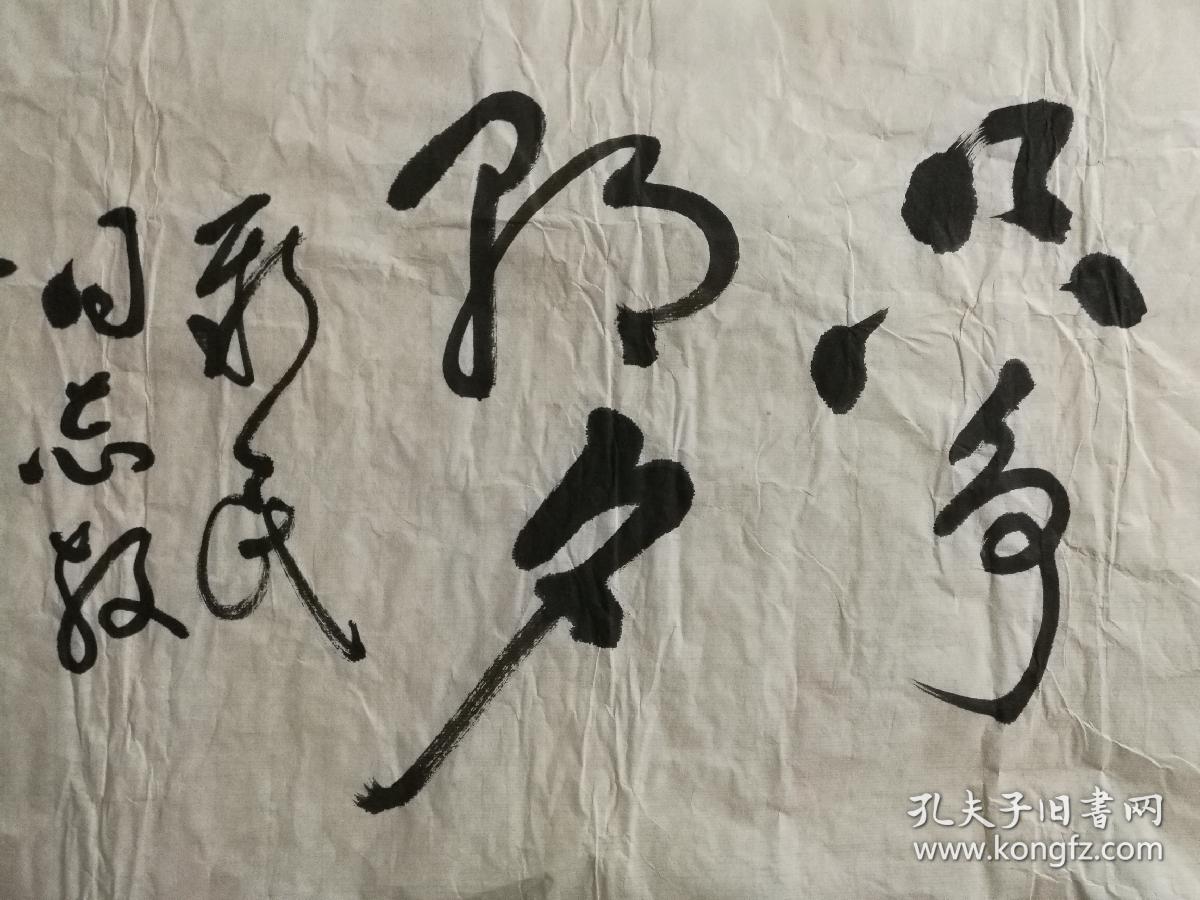 只争
朝夕
新民
同志教
孔夫子旧書网
www.kongfz.com